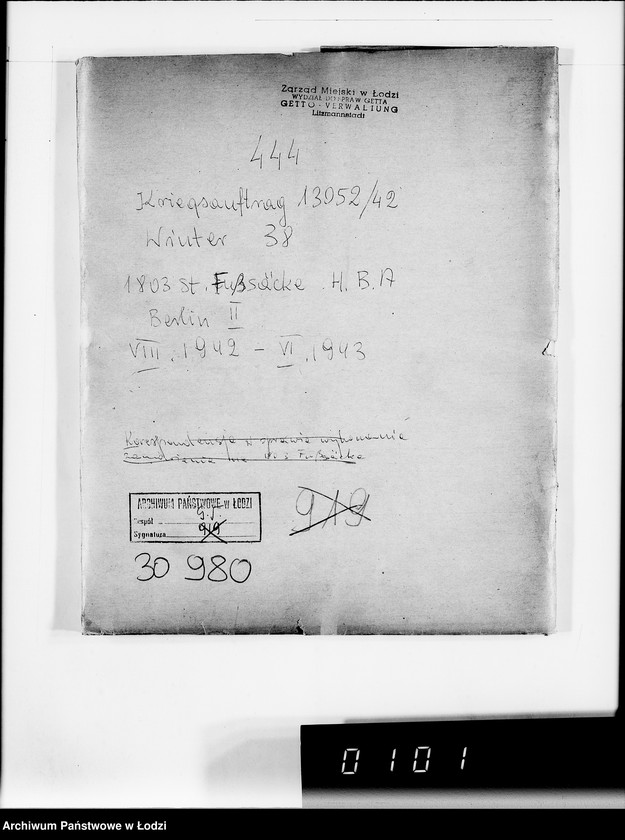 Zarząd Miejski w Łodzi
WYDZIAŁ DO SPRAW GETTA
GETTO-VERWALTUNG
Litzmannstadt
444
Kriegsauftrag 13952/42
Winter 38
1803 St. Fußsäcke. H. B. A
Berlin II
VIII. 1942 – VI. 1943
Korespondencja w sprawie wykonania
zamówienia na Fußsäcke
ARCHIWUM PAŃSTWOWE w ŁODZI
Zespół
Sygnatura 919
919
30 980
0101
Archiwum Państwowe w Łodzi